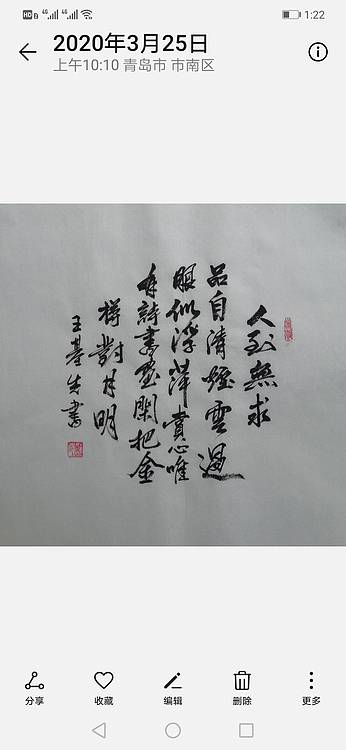 HD 4G 4G 1:22
2020年3月25日
上午10:10 青岛市 市南区
人到無求
品自清烟雲過
眼似浮萍賞心唯
有詩書画閑把金
樽對月明
王基生書
分享 收藏 编辑 删除 更多